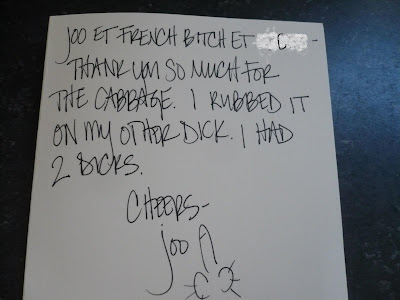 JOO ET FRENCH BITCH ET C -
THANK YOU SO MUCH FOR
THE CABBAGE. I RUBBED IT
ON MY OTHER DICK. I HAD
2 DICKS.
CHEERS-
JOO A